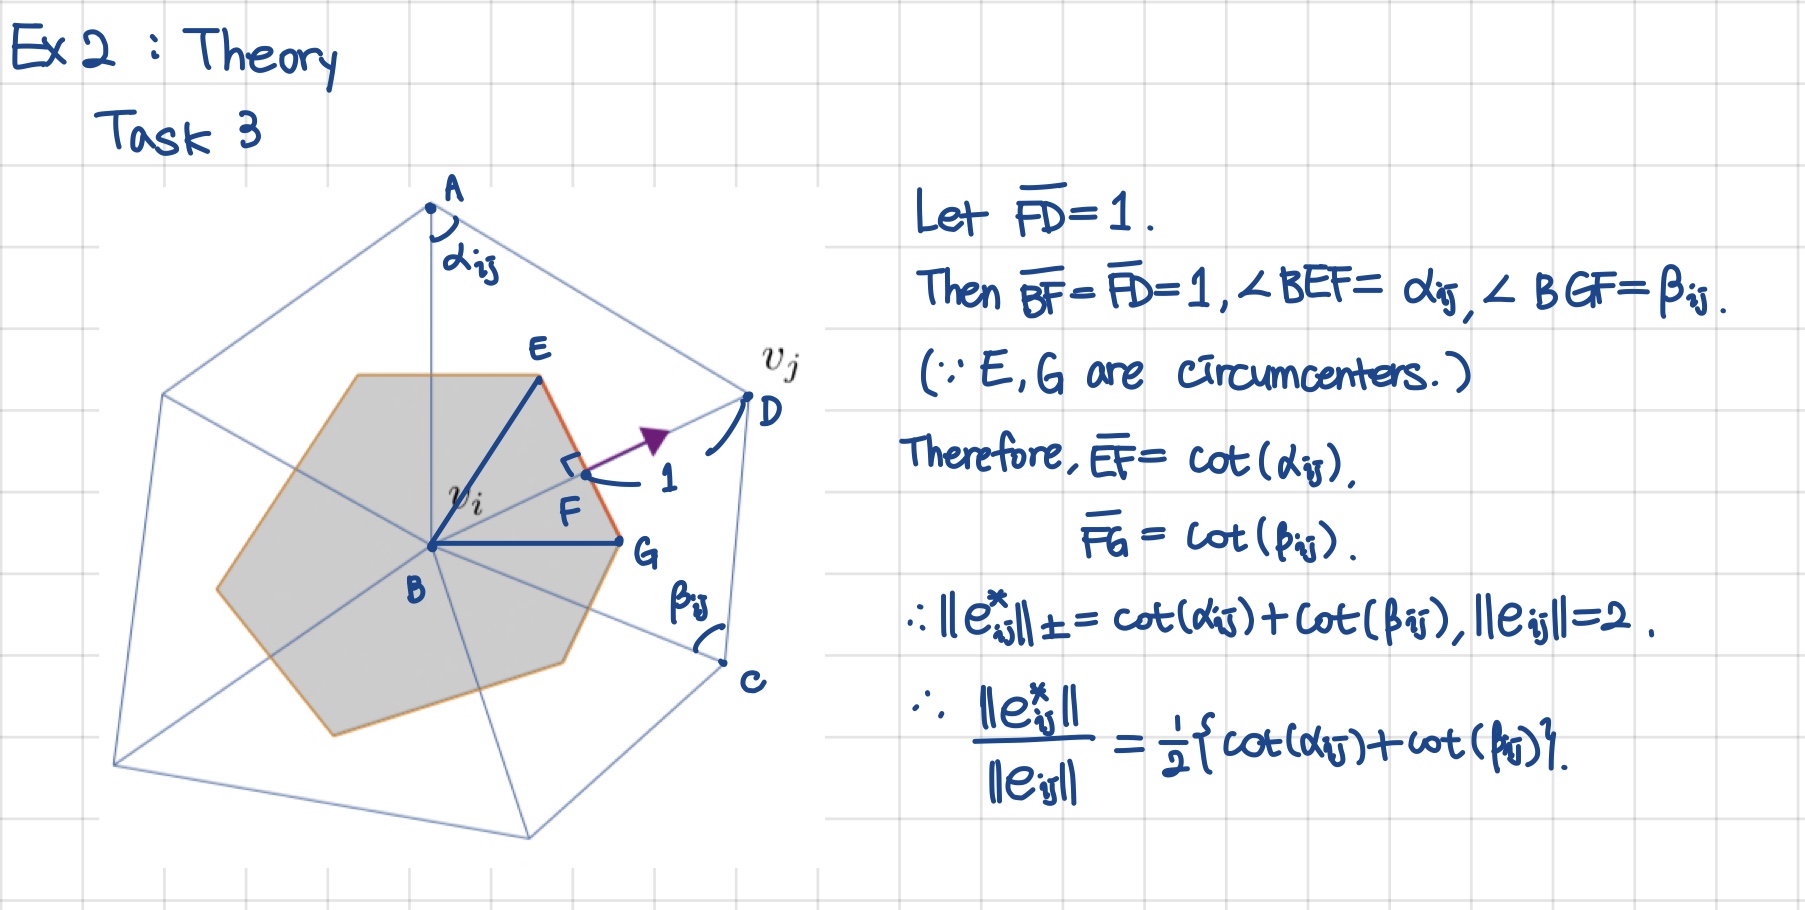 Ex 2 : Theory
Task 3
A
αij
E
vj
D
1
vi
F
G
B
βij
C
Let F̅D̅ = 1.
Then B̅F̅ = F̅D̅ = 1, ∠BEF = αij, ∠BGF = βij.
(∵ E, G are circumcenters.)
Therefore, E̅F̅ = cot(αij),
F̅G̅ = cot(βij).
∴ ||e*ij||± = cot(αij)+cot(βij), ||eij|| = 2.
∴ ||e*ij|| / ||eij|| = 1/2 {cot(αij)+cot(βij)}.